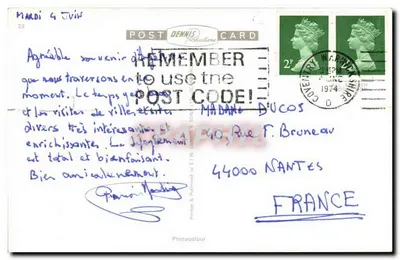 MARDI 4 JUIN
POST CARD
DENNIS
REMEMBER
to use the
POST CODE!
COVENTRY WARWICKSHIRE
1974
D
2P
Agréable souvenir d'
que nous traversons en ce
moment. Le temps
et les visites de villes et
divers très intéressants et
enrichissantes. Le dépaysement
est total et bienfaisant.
Bien amicalement.
MADAME DUCOS
40, Rue F. Bruneau
44000 NANTES
FRANCE
Photocolour